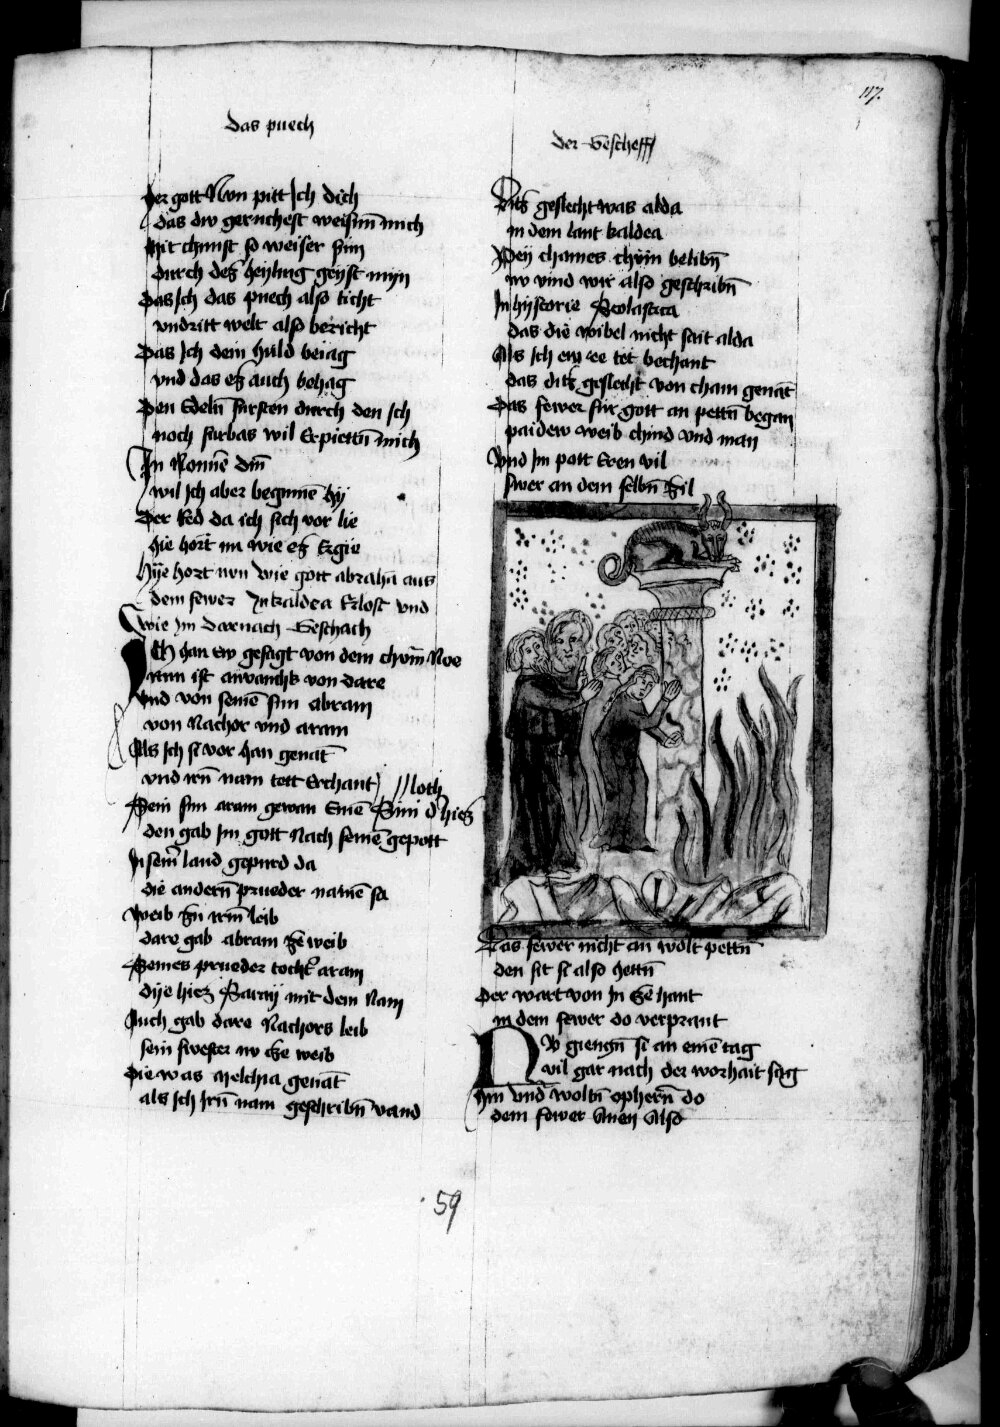 117.
das puech
der Gescheff
Her gott Nun pitt Ich dich
das dw geruchest weisenn mich
Mit chunst so weiser sinn
durch deß heyling geyst myn
Das Ich das puech also ticht
vnd ritt welt also bericht
Das Ich dein huld beiag
vnd das eß auch behag
Den Edeln̄ fursten durch den Ich
noch furbas wil Erpietn̄ mich
In Nomīe dm̄
wil Ich aber begīnē hy
Der Red da ich sich vor lie
hie hort im wie eß Ergie
Hye hort nvn wie gott abrahā aus
dem fewer In kaldea Erlost vnd
wie Im darnach Geschach
Ich han Ew gesagt von dem chvm̄ Noe
Nun ist von dare
Vnd von seinē sun abram
von Nachor vnd aram
Als Ich si vor han genāt
vnd irn̄ nam tett Erchant
Sein sun aram gewan Einē Sun d hieß loth
den gab Im gott Nach seinē gepott
In sem̄ land gepurd da
die andern̄ prueder namē sa
Weib zu irm̄ leib
dare gab abram ze weib
Seines prueder tocht aram
dye hieß Saray mit dem Nam
Auch gab dare Nachors leib
sein swester nv ze weib
Die was Melcha genāt
als Ich Irn̄ nam geschribn̄ vand
Ditz geslecht was alda
in dem lant kaldea
Pey chames chvn belibn̄
nv vind wir also geschribn̄
In hystorie Scolastica
das die wibel nicht sait alda
Als Ich ew ee tet bechant
das ditz geslecht von cham genāt
Das fewer fur gott an pettn̄ began
paidew weib chind vnd man
Vnd Im pott Eren vil
swer an dem selbn̄ zil
Das fewer nicht an wolt pettn̄
den sit si also hettn̄
Der wart von In ze hant
in dem fewer do verprant
Nv giengn̄ si an einē tag
vil gar nach der worhait sag
Hin vnd woltn̄ ophern̄ do
dem fewer Also
59